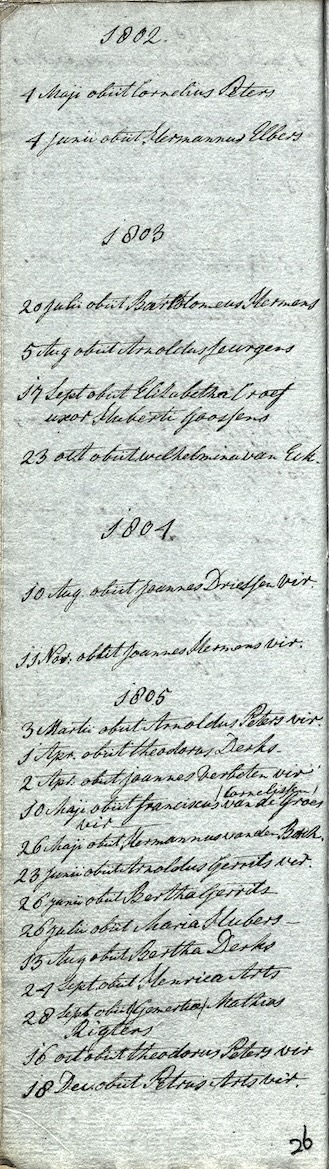 1802.
4 Maji obiit Cornelius Peters
4 Junii obiit Hermannus Elbers
1803
20 Julii obiit Bartholomeus Hermens
5 Aug obiit Arnoldus Jeurgens
17 Sept obiit Elisabetha Croef
uxor Huberti Goossens
23 oct obiit wilhelmina van Eck.
1804.
10 Aug. obiit Joannes Driessen vir.
11 Nov. obiit Joannes Hermens vir.
1805
3 Martii obiit Arnoldus Peters vir
1 Apr. obiit theodorus Derks
2 Apr. obiit Joannes Verbeten vir
10 Maji obiit franciscus (Cornelissen) van de Groes
vir
26 Maji obiit Hermannus van den Bock.
23 Junii obiit Arnoldus Gerrits vir
26 Junii obiit Bertha Gerrits
26 Julii obiit Maria Hubers
13 Aug obiit Bertha Derks
24 Sept obiit Henrica Arts
28 Sept obiit Mathias
Rigters
16 oct obiit theodorus Peters vir
18 Dec. obiit Petrus Arts vir.
26